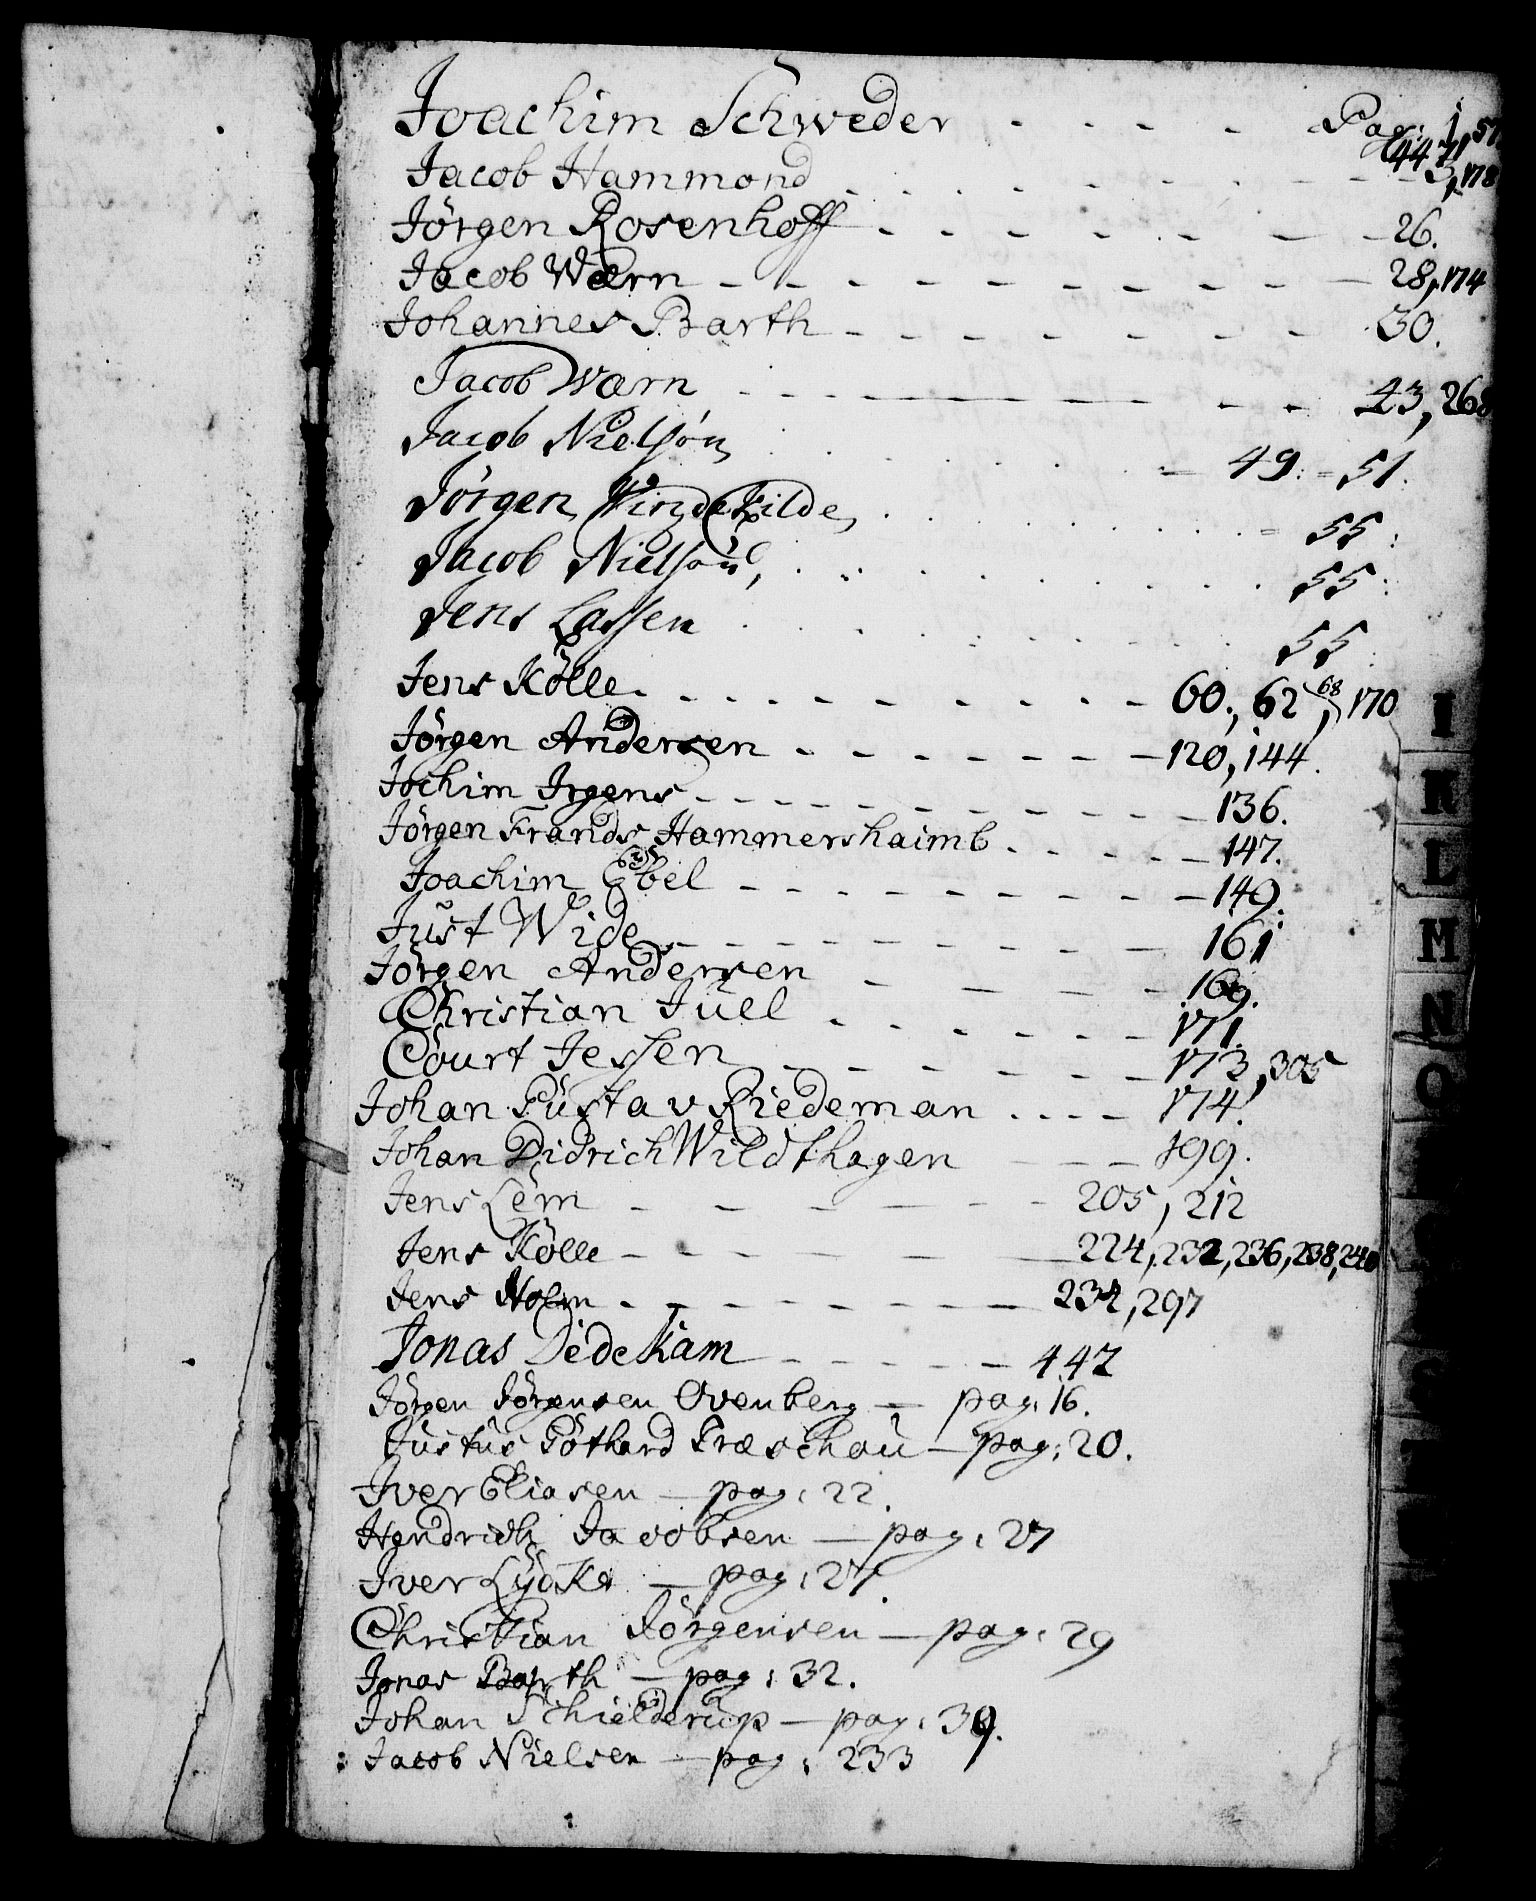 Joachim Schweder - - - - Pag: 1, 57
447,
Jacob Hammond - - - - - - 3, 178
Jørgen Rosenhoff - - - - - - - 26.
Jacob Wærn - - - - - - - - 28, 174
Johannes Barth - - - - - - - 30.
Jacob Wærn - - - - - - - 43, 268
Jacob Nielsøn . . . . . . - 49. = 51.
Jørgen Windekilde, . . . . . . = 55:
Jacob Nielsøn, . . . . . . . 55:
Jens Lassen . . . . . . . 55:
Jens Kølle. - - - - - - - - 60., 62, 68, 170
Jørgen Andersen - - - - - - - 120, 144.
Jochim Irgens - - - - - - - - 136.
Jørgen Frands Hammershaimb - - - - - 147.
Joachim Ebel - - - - - - - - 149.
Just Wide - - - - - - - - 161
Jørgen Andersen - - - - - 169.
Christian Juel - - - - - - 171.
Court Jessen - - - - - - - 173, 305
Johan Gustav Riedeman . . . - 174.
Johan Didrich Wildthagen - - - 199.
Jens Lem - - - - - - 205, 212
Jens Kølle - - - - - - 224, 232, 236, 238, 240
Jens Holm - - - - - - - 234, 297
Jonas Dedekam - - - - - 447
Jørgen Jørgensen Ovenberg — pag: 16.
Justus Gøthard Træschau — pag: 20.
Iver Eliasen — pag: 22.
Hendrich Jacobsen — pag: 27
Iver Lydke — pag: 27.
Christian Jørgensen — pag: 29
Jonas Barth — pag: 32.
Johan Schielderup — pag: 39.
: Jacob Nielsen — pag: 233
I
K
L
M
N
O